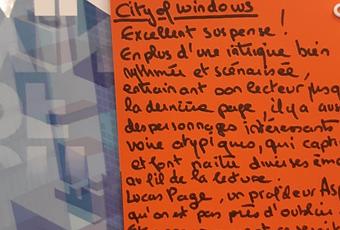 City of windows
Excellent suspense !
En plus d'une intrigue bien
rythmée et scénarisée,
entrainant son lecteur jusq
la dernière page, il y a aus
des personnages intéressants
voire atypiques, qui capti
et font naître diverses émo
au fil de la lecture.
Lucas Page, un profileur Asp
qu'on est pas près d'oublier